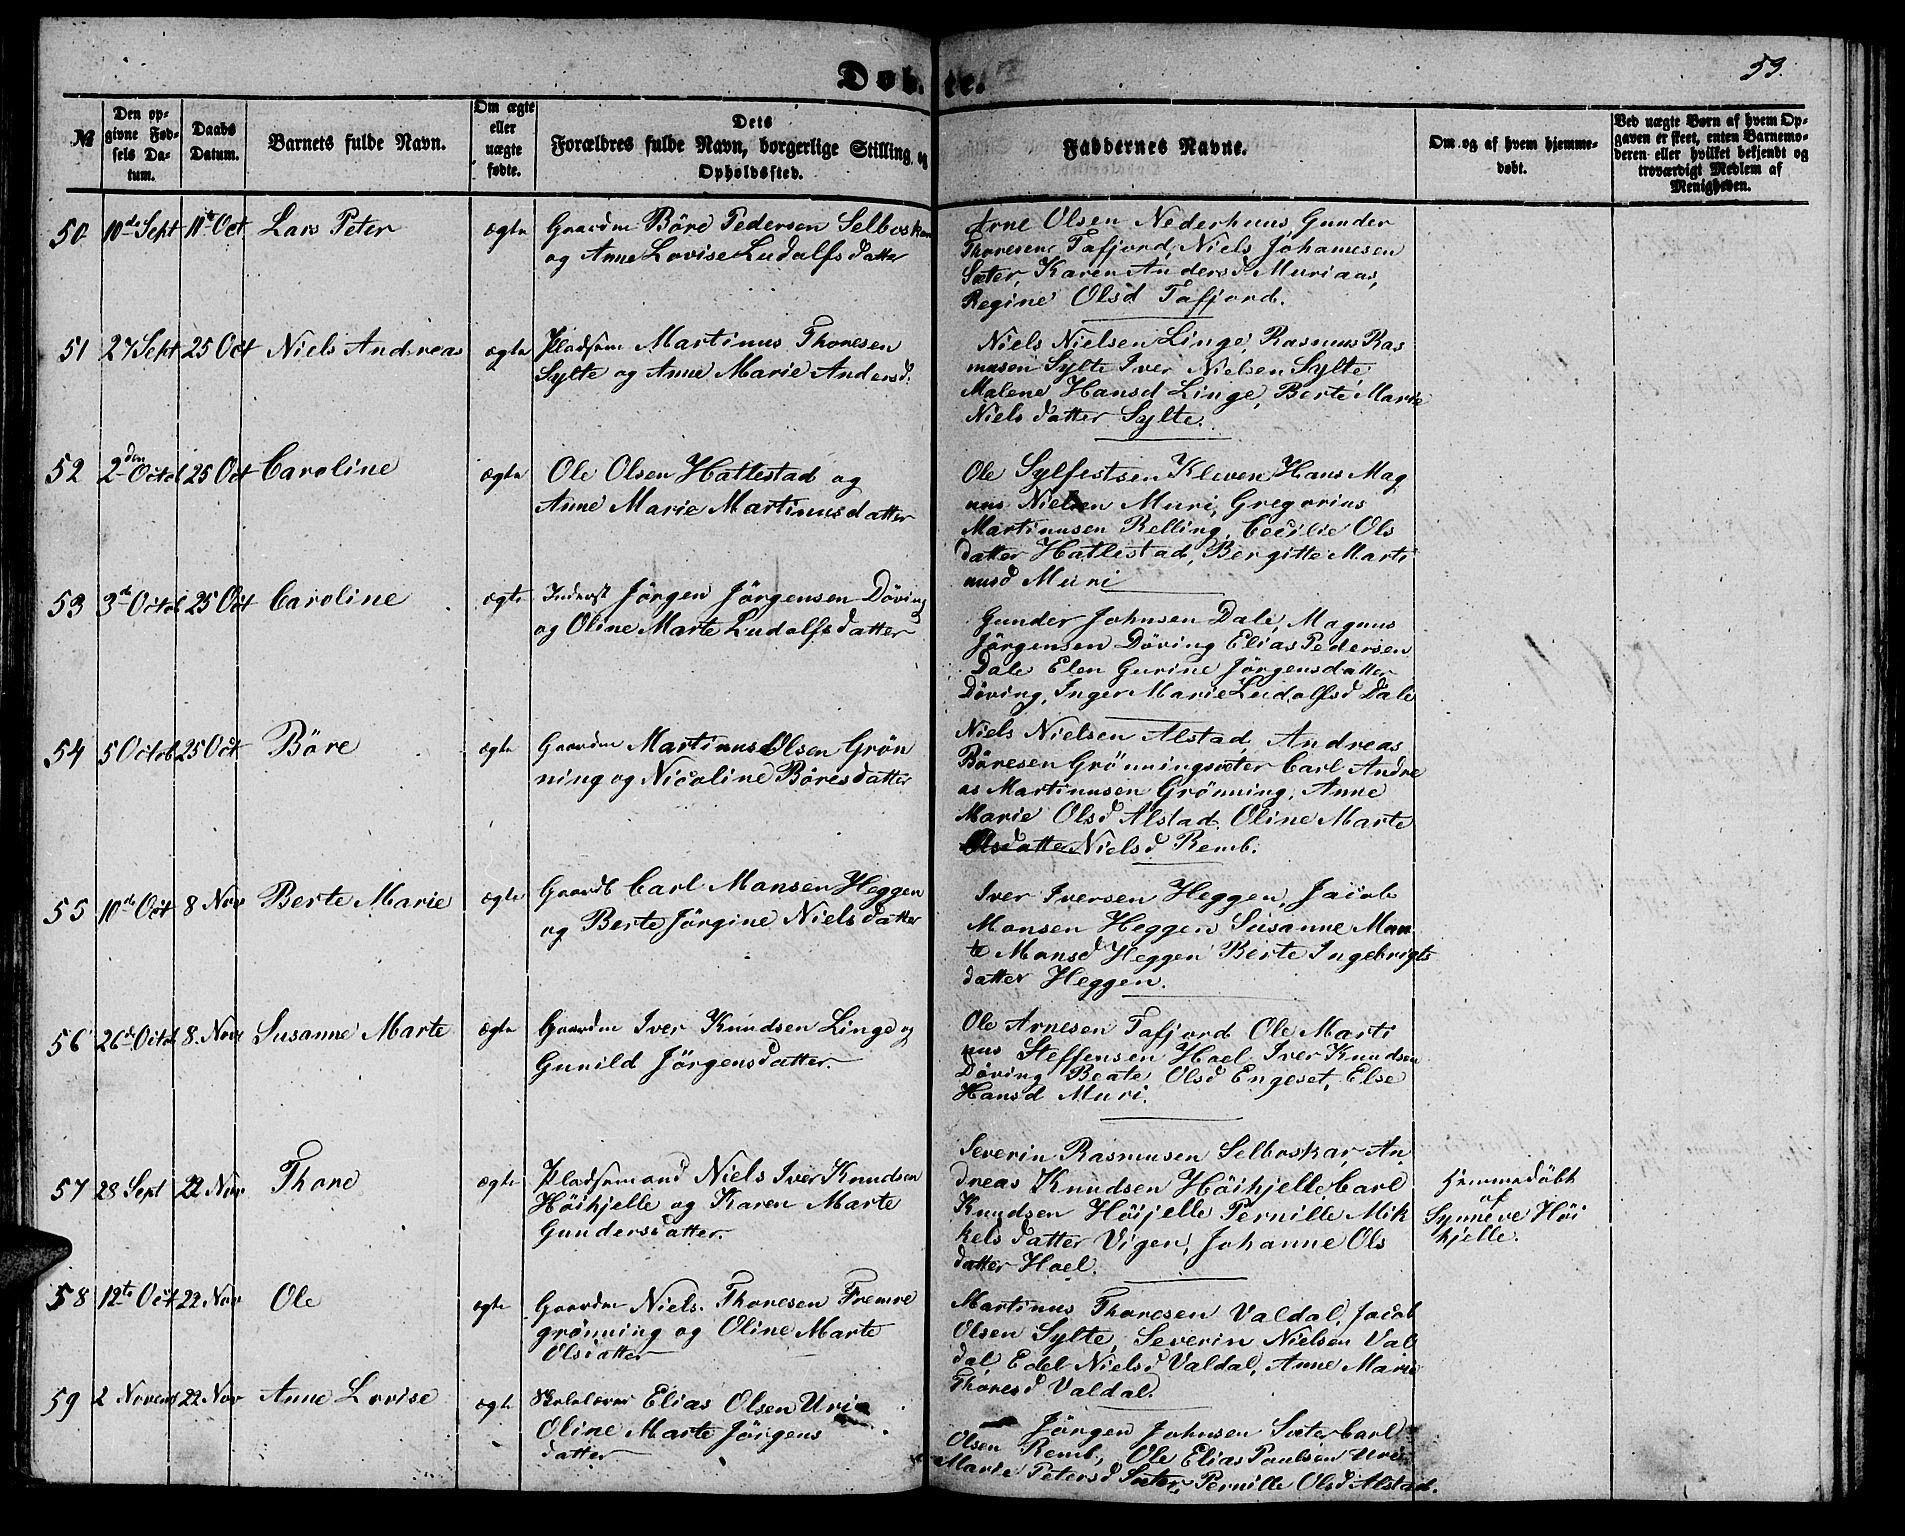 Døbte.
53.
№
Den opgivne Fødsels Datum.
Daabs Datum.
Barnets fulde Navn.
Om ægte eller uægte fødte.
Dets Forældres fulde Navn, borgerlige Stilling og Opholdssted.
Faddernes Navne.
Om og af hvem hjemmedøbt.
Ved uægte Børn af hvem Opgaven er skeet, enten Barnemoderen eller hvilket bekjendt og troværdigt Medlem af Menigheden.
50 10de Sept 11te Oct Lars Peter ægte
Gaardm Böre Pedersen Selboskar
og Anne Lovise Ludolfsdatter
Arne Olsen Nederhuus, Gunder
Thoresen Tafjord, Niels Johannesen
Sæter, Karen Andersd Muriaas,
Regine Olsd Tafjord.
51 27 Sept 25 Oct Niels Andreas ægte
Pladsm Martinus Thoresen
Sylte og Anne Marie Andersd.
Niels Nielsen Linge, Rasmus Ras
musen Sylte Iver Nielsen Sylte,
Malene Hansd Linge, Berte Marie
Nielsdatter Sylte.
52 2den Octob 25 Oct Caroline ægte
Ole Olsen Hatlestad og
Anne Marie Martinusdatter
Ole Sylfestsen Kleven, Hans Mag
nus Nielsen Muri, Gregorius
Martinusen Relling, Cecilie Ols
datter Hatlestad, Bergitte Marti
nusd Muri
53 3de Octob 25 Oct Caroline ægte
Inderst Jörgen Jörgensen Döving
og Oline Marte Ludolfsdatter
Gunder Johnsen Dale, Magnus
Jörgensen Döving Elias Pedersen
Dale Elen Gurine Jörgensdatter
Döving, Inger Marie Ludolfsd Dale
54 5 Octob 25 Oct Böre ægte
Gaardm Martinus Olsen Grön
ning og Nicoline Böresdatter
Niels Nielsen Alstad, Andreas
Böresen Grönningsæter Carl Andre
as Martinusen Grönning, Anne
Marie Olsd Alstad, Oline Marte
Olsdatter Nielsd Remb.
55 10de Oct 8 Nov Berte Marie ægte
Gaardb Carl Monsen Heggen
og Berte Jörgine Nielsdatter
Iver Iversen Heggen, Jacob
Monsen Heggen Susanne Mar
te Monsd Heggen Berte Ingebrigts
datter Heggen.
56 26de Octob 8. Nov Susanne Marte ægte
Gaardm Iver Knudsen Linge og
Gunild Jörgensdatter.
Ole Arnesen Tafjord Ole Marti
nus Steffensen Hoel, Iver Knudsen
Döving Beate Olsd Engeset, Else
Hansd Muri.
57 28 Sept 22 Nov Thore ægte
Pladsemand Niels Iver Knudsen
Höihjelle og Karen Marte
Gundersdatter.
Severin Rasmusen Selboskar, An
dreas Knudsen Höihjelle Carl
Knudsen Höijelle Pernille Mik
kelsdatter Vigen, Johanne Ols
datter Hoel.
Hjemmedöbt
af
Synneve Höi
hjelle.
58 12te Oct 22 Nov Ole ægte
Gaardm Niels Thoresen Fremre
grönning og Oline Marte
Olsdatter
Martinus Thoresen Valdal, Jacob
Olsen Sylte, Severin Nielsen Val
dal Edel Nielsd Valdal, Anne Marie
Thoresd Valdal.
59 2 Novemb 22 Nov Anne Lovise ægte
Skolelærer Elias Olsen Uri
Oline Marte Jörgens
datter
Jörgen Johnsen Sæter Carl
Olsen Remb, Ole Elias Paulsen Uri
Marie Petersd Sæter, Pernille Olsd Alstad.